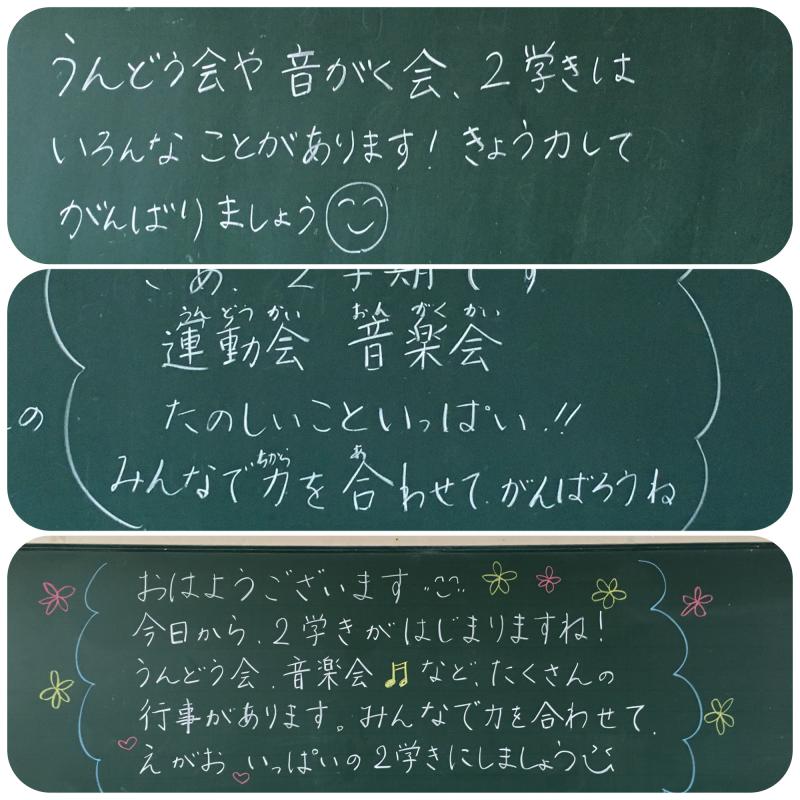 うんどう会や 音がく会、2学きは
いろんな ことがあります! きょう力して
がんばりましょう
さあ、2学期です
うん どう かい おん がく かい
運動会 音楽会
の
たのしいこといっぱい!!
ちから あ
みんなで力を合わせて、がんばろうね
おはようございます
今日から、2学きがはじまりますね!
うんどう会、音楽会♬など、たくさんの
行事があります。みんなで力を合わせて、
えがお いっぱいの2学きにしましょう